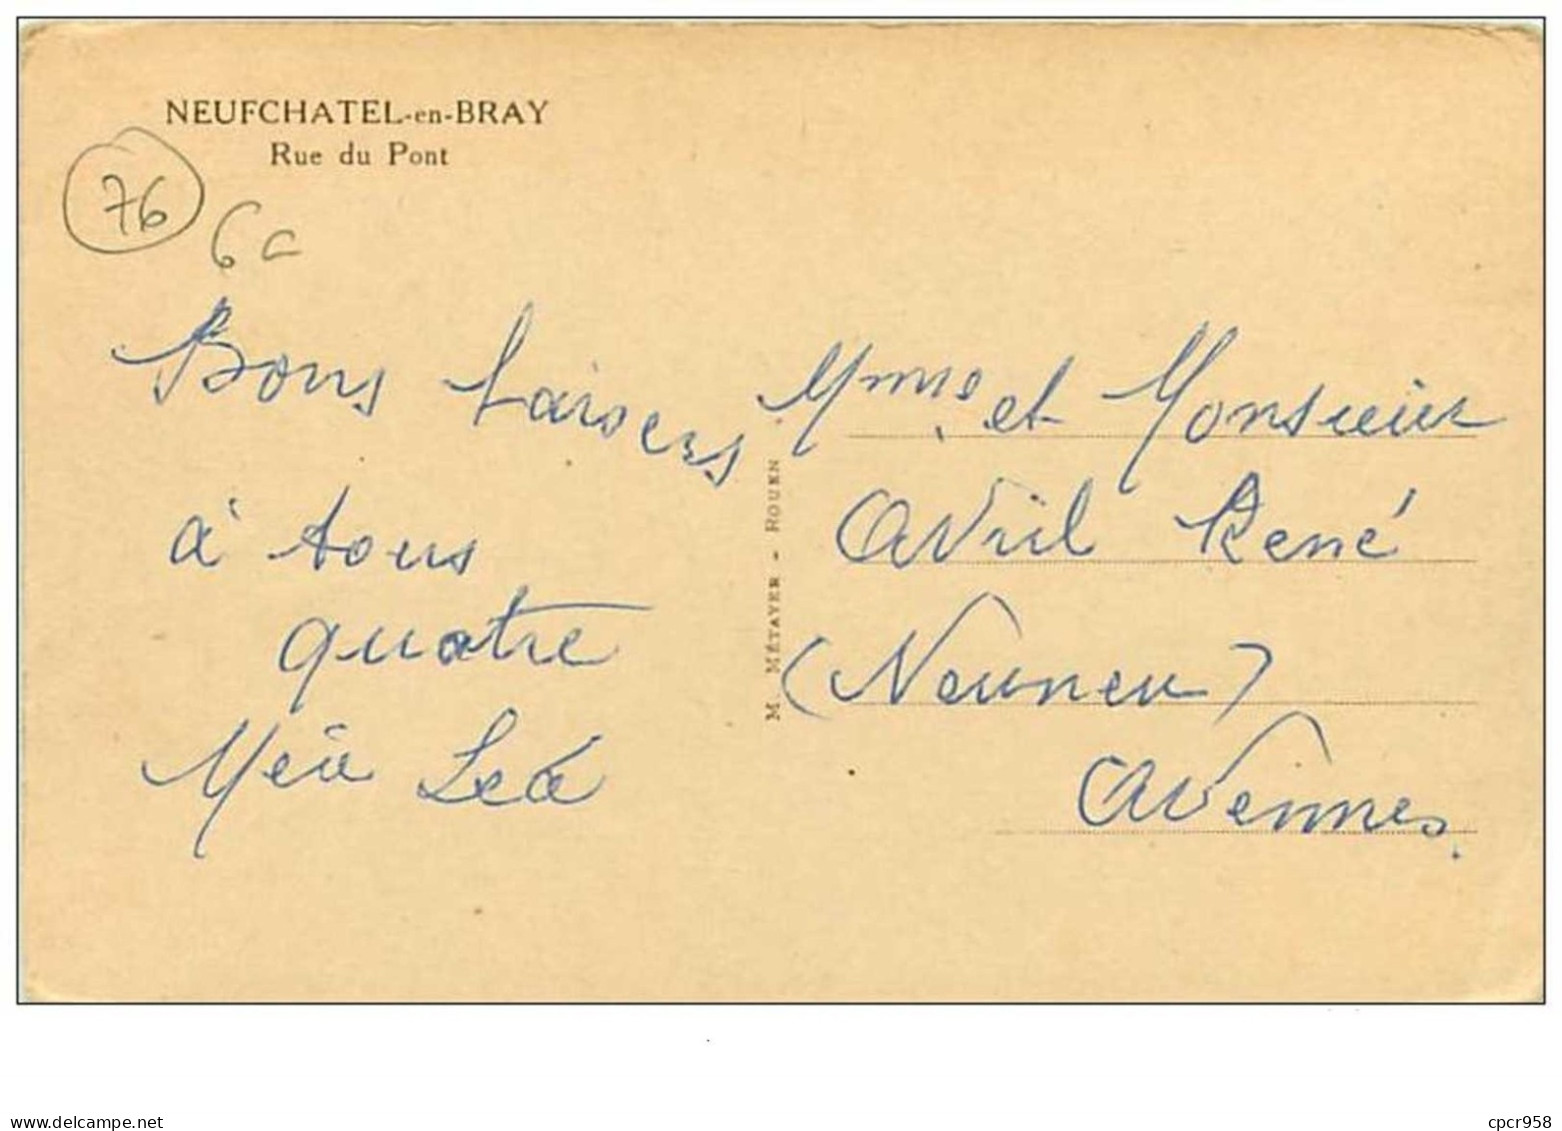 NEUFCHATEL-en-BRAY
Rue du Pont
76
6
Bons baisers
à tous
quatre
Léa
M. MÉTAYER - ROUEN
Mme et Monsieur
Avril René
Avennes.
cpcr958